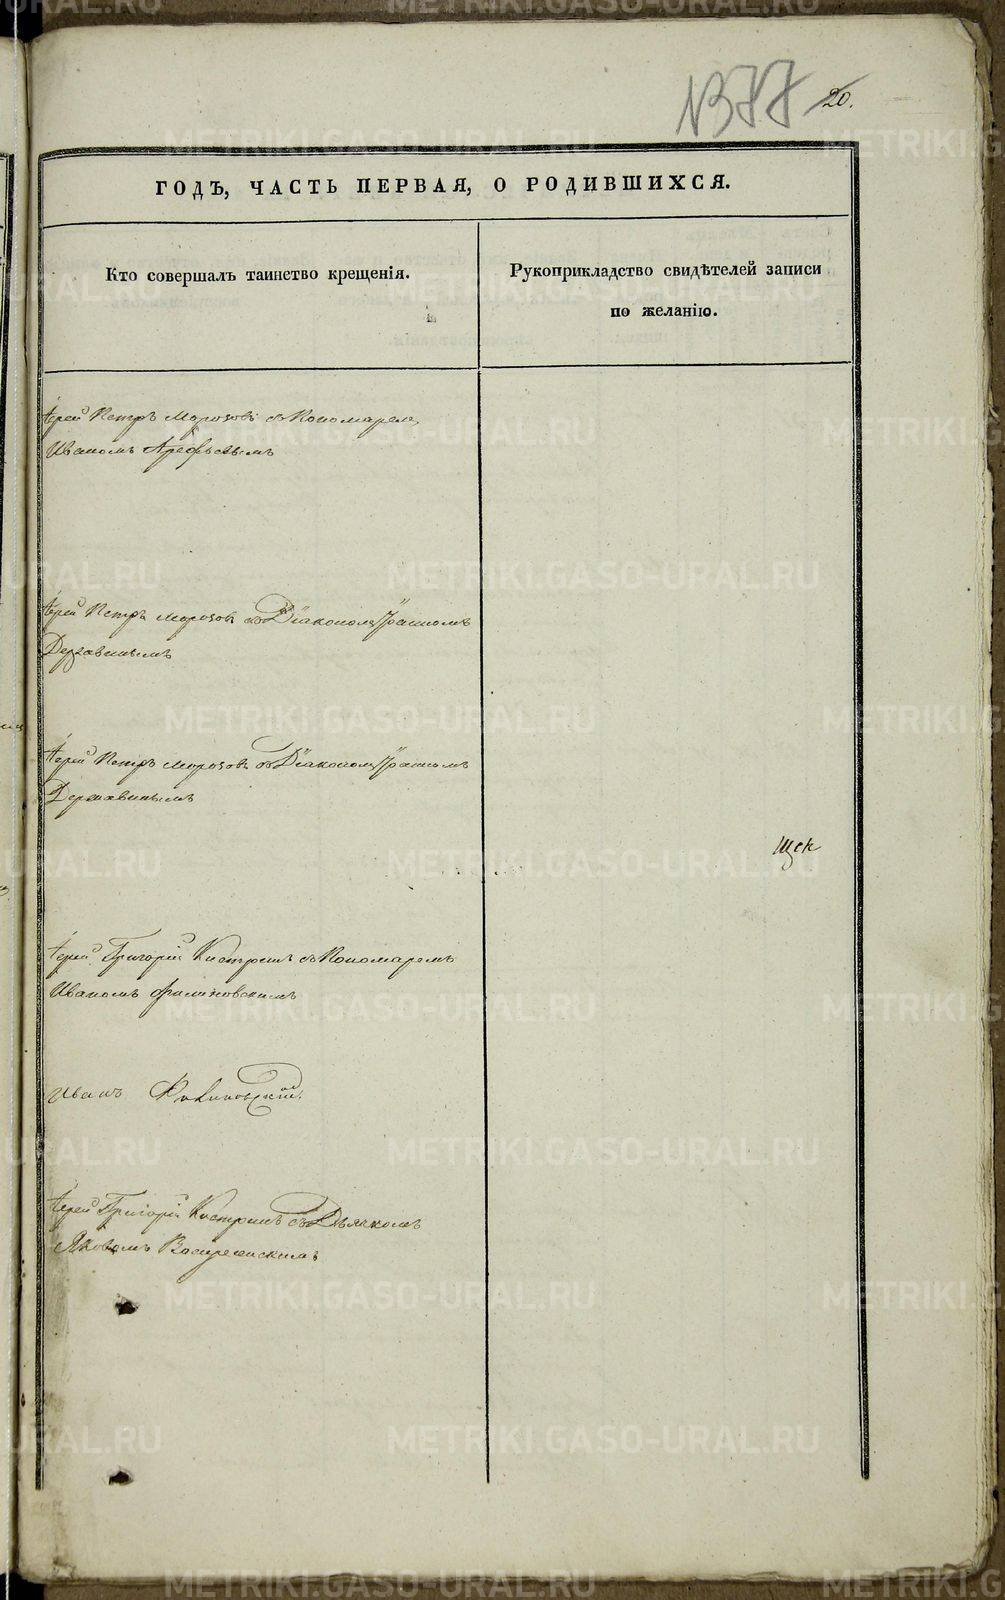 20.
ГОДЪ, ЧАСТЬ ПЕРВАЯ, О РОДИВШИХСЯ.
Кто совершалъ таинство крещенія.
Рукоприкладство свидѣтелей записи
по желанію.
Іерей Петръ Морозовъ съ Пономаремъ
Иваномъ Арефьевымъ
Іерей Петръ Морозовъ съ Діакономъ
Державинымъ
Іерей Петръ Морозовъ съ Діакономъ
Державинымъ
Іерей Григорій съ Пономаремъ
Иваномъ
Иванъ
Іерей Григорій съ Дьячкомъ
Яковомъ Воскресенскимъ
METRIKI.GASO-URAL.RU